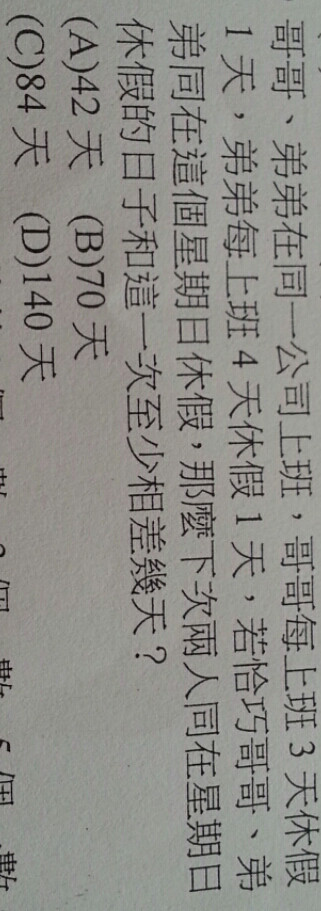 哥哥、弟弟在同一公司上班，哥哥每上班3天休假
1天，弟弟每上班4天休假1天，若恰巧哥哥、弟
弟同在這個星期日休假，那麼下次兩人同在星期日
休假的日子和這一次至少相差幾天？
(A)42天 (B)70天
(C)84天 (D)140天